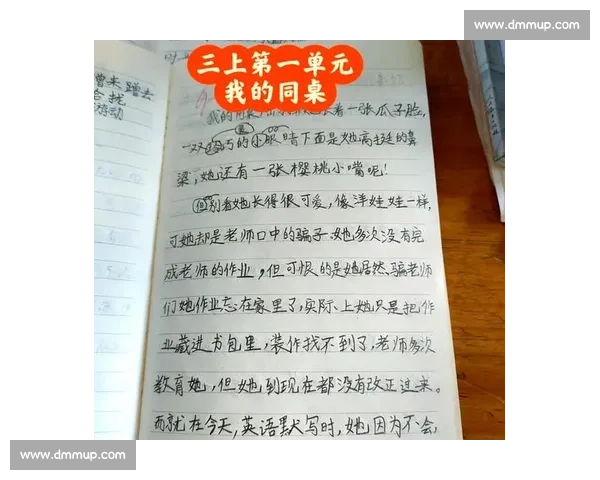 www.dmmup.com
三上第一单元
我的同桌
曾来 蹭去
合拢
移动
我的同桌 着一张瓜子脸,
一双 巧的小眼睛下面是她高挺的鼻
梁,她还有一张樱桃小嘴呢!
但别看她长得很可爱,像洋娃娃一样,
可她却是老师口中的骗子、她多次没有完
成老师的作业,但可恨的是她居然、骗老师
们她作业忘在家里了,实际上她只是把作
业藏进书包里,装作找不到了,老师多次
教育她,但她到现在都没有改正过来。
而就在今天,英语默写时,她因为不会,
www.dmmup.com